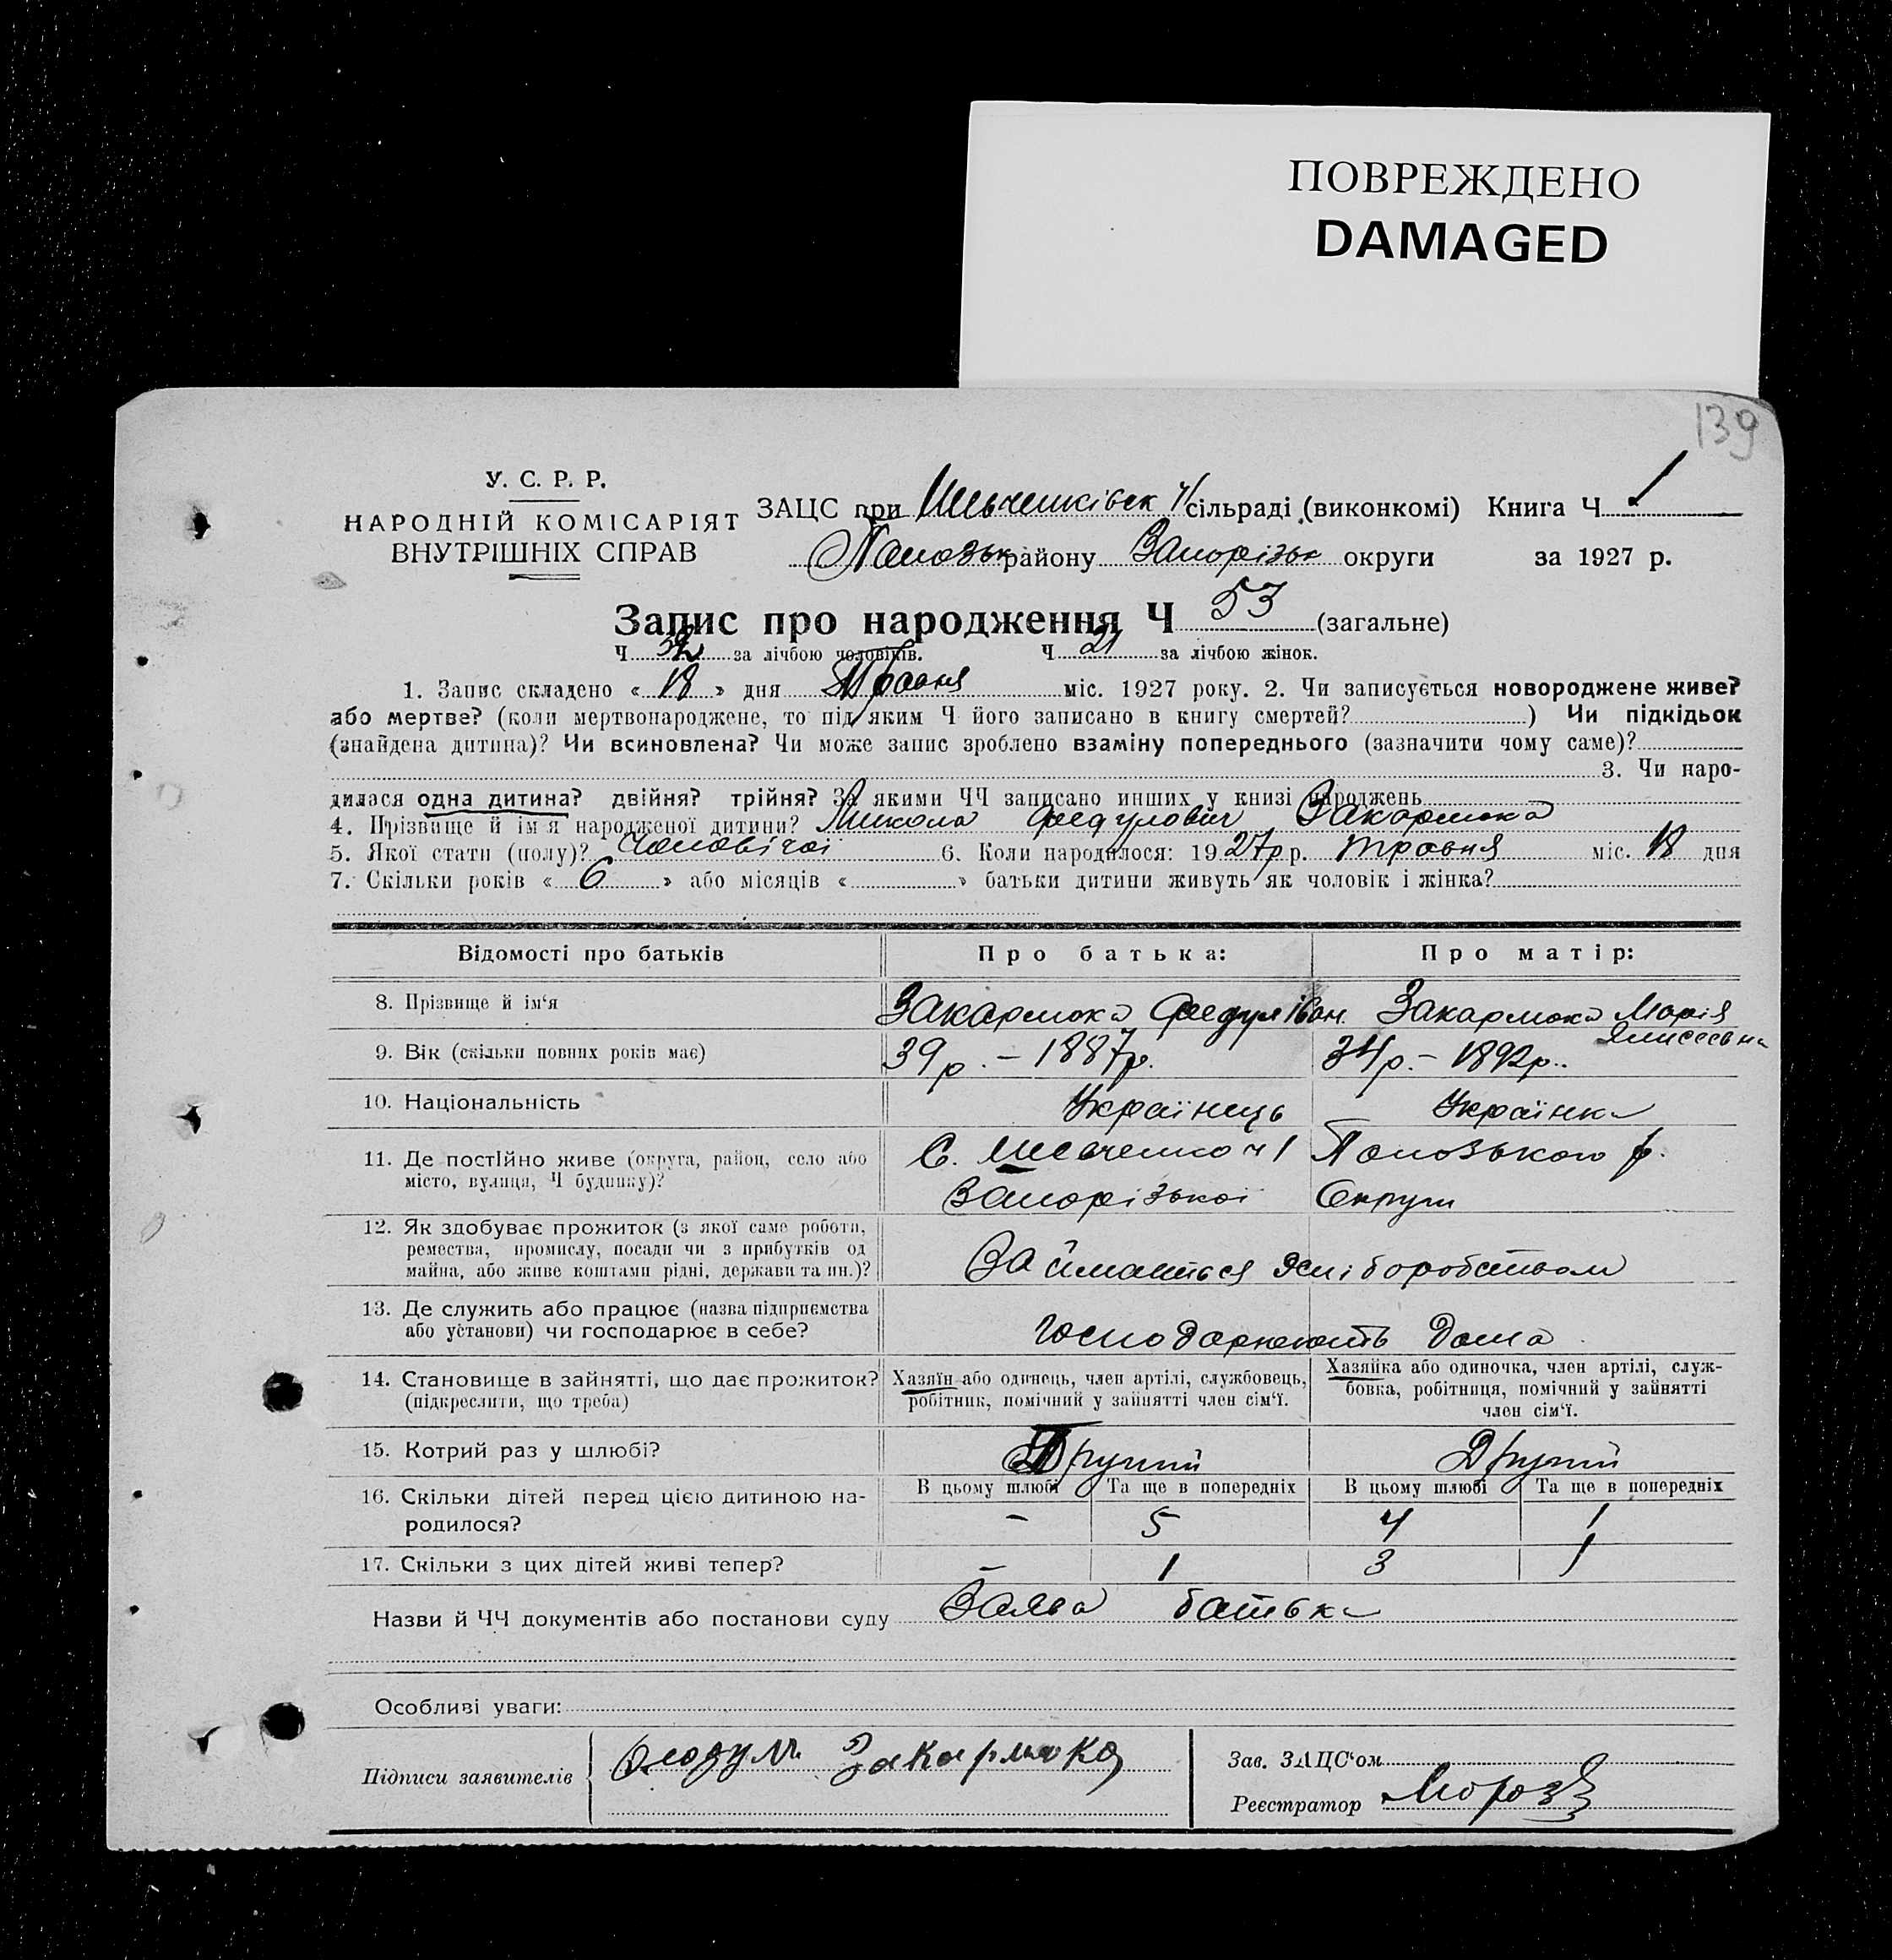 ПОВРЕЖДЕНО
DAMAGED
139
У. С. Р. Р.
НАРОДНІЙ КОМІСАРІЯТ
ВНУТРІШНІХ СПРАВ
ЗАЦС при Шевченківск ч/ сільраді (виконкомі) Книга Ч 1
району Запорізьк округи за 1927 р.
Запис про народження Ч 53 (загальне)
Ч 32 за лічбою чоловіків. Ч 21 за лічбою жінок.
1. Запис складено « 18 » дня Травня міс. 1927 року. 2. Чи записується новороджене живе?
або мертве? (коли мертвонароджене, то під яким Ч його записано в книгу смертей? ) Чи підкідьок
(знайдена дитина)? Чи всиновлена? Чи може запис зроблено взаміну попереднього (зазначити чому саме)?
3. Чи наро-
дилася одна дитина? двійня? трійня? За якими ЧЧ записано инших у книзі народжень
4. Прізвище й ім'я народженої дитини? Микола Федулович Закарлюка
5. Якої стати (полу)? Чоловічої 6. Коли народилося: 1927р р. травня міс. 18 дня
7. Скільки років « 6 » або місяців « » батьки дитини живуть як чоловік і жінка?
Відомості про батьків
Про батька:
Про матір:
8. Прізвище й ім'я
Закарлюка Федул Іван.
Закарлюка Марія
9. Вік (скільки повних років має)
39 р. – 1887р.
34 р. – 1892р.
10. Національність
Українець
Українка
11. Де постійно живе (округа, район, село або
місто, вулиця, Ч будинку)?
С. Шевченко ч 1
Запорізької Округи
12. Як здобуває прожиток (з якої саме роботи,
ремества, промислу, посади чи з прибутків од
майна, або живе коштами рідні, держави та ин.)?
Займаються хліборобством
13. Де служить або працює (назва підприємства
або установи) чи господарює в себе?
Господарюють дома
14. Становище в зайнятті, що дає прожиток?
(підкреслити, що треба)
Хазяїн або одинець, член артілі, службовець,
робітник, помічний у зайнятті член сім'ї.
Хазяйка або одиночка, член артілі, служ-
бовка, робітниця, помічний у зайнятті
член сім'ї.
15. Котрий раз у шлюбі?
Другий
Другий
16. Скільки дітей перед цією дитиною на-
родилося?
В цьому шлюбі Та ще в попередніх В цьому шлюбі Та ще в попередніх
– 5 4 1
17. Скільки з цих дітей живі тепер?
– 1 3 1
Назви й ЧЧ документів або постанови суду Заява батька
Особливі уваги:
Підписи заявителів
Федул Закарлюка
Зав. ЗАЦС'ом
Реєстратор Мороз